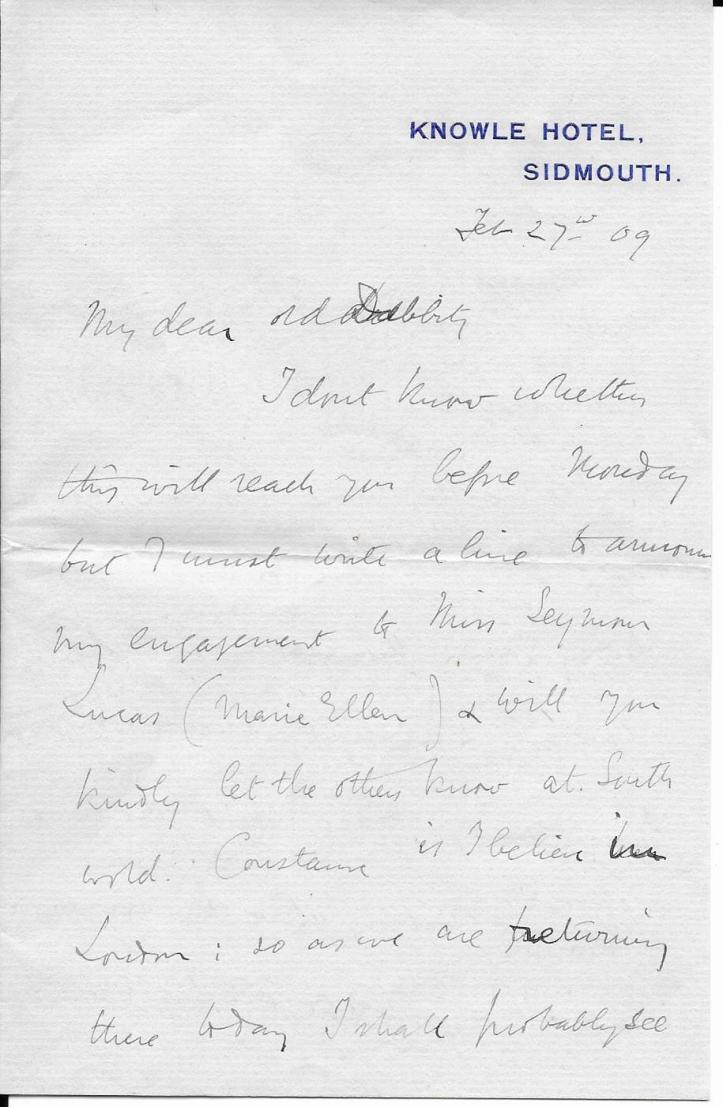 KNOWLE HOTEL,
SIDMOUTH.
Feb 27 09
My dear old
I dont know whether
this will reach you before Monday
but I must write a line to
my engagement to Miss Seymour
Lucas (Marie Ellen) & will you
kindly let the others know at South
wold. Constance is I believe in
London : so as we are returning
there today I shall probably see